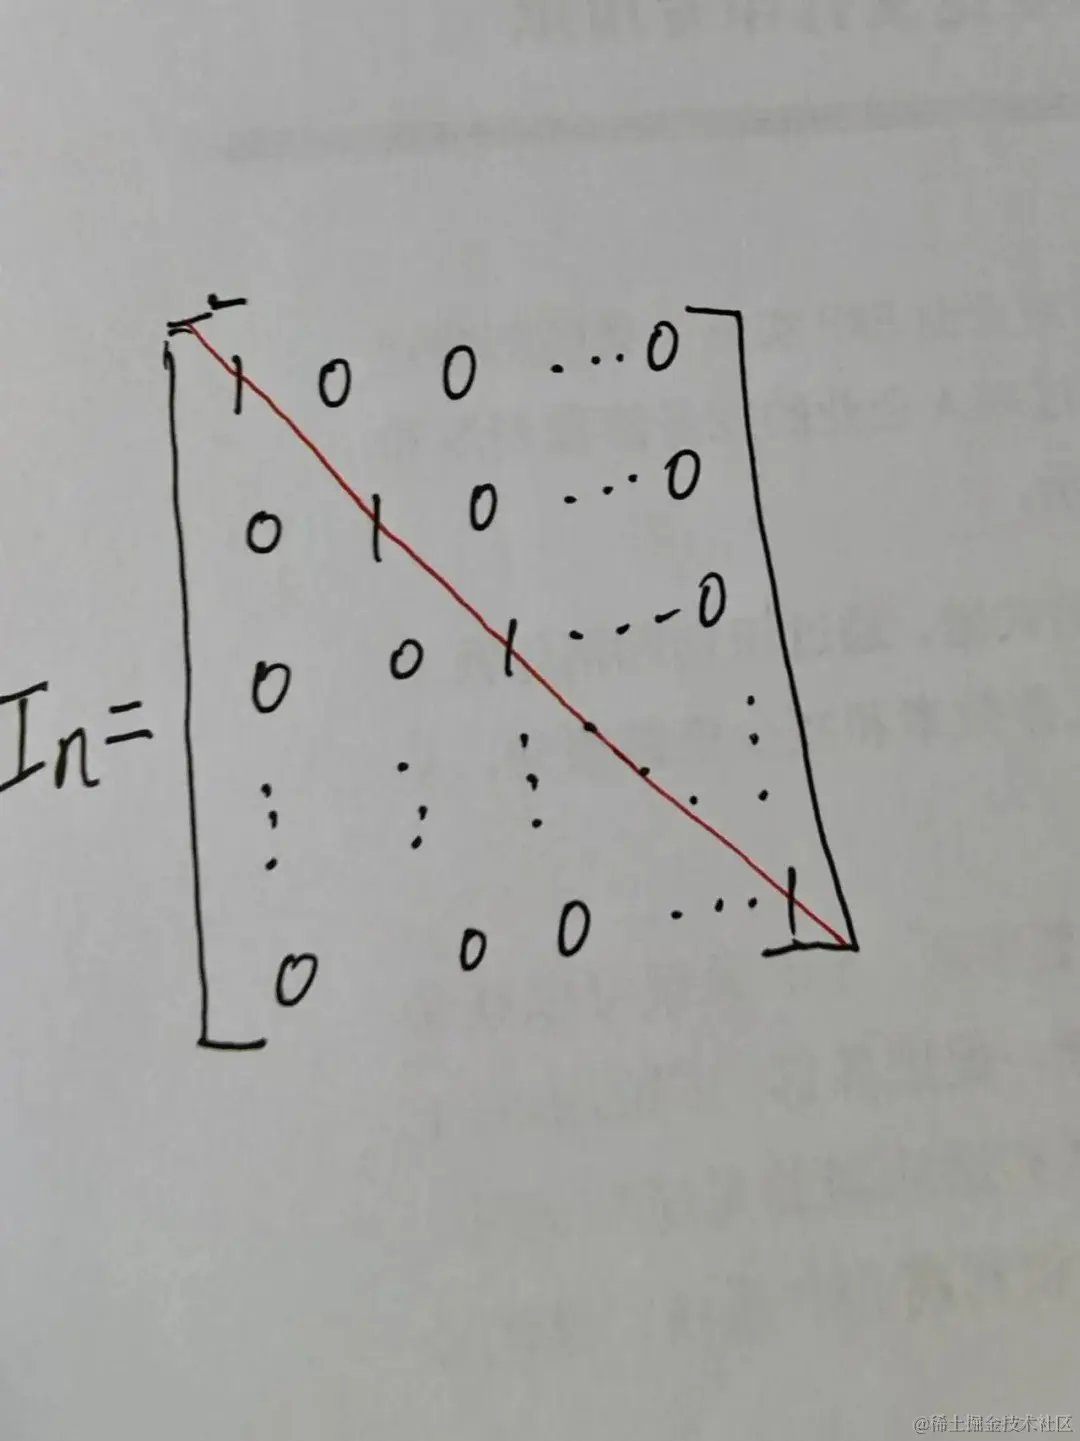 1 0 0 ... 0
0 1 0 ... 0
0 0 1 ... 0
In=
⋮ ⋮ ⋮ ⋱ ⋮
0 0 0 ... 1
@稀土掘金技术社区